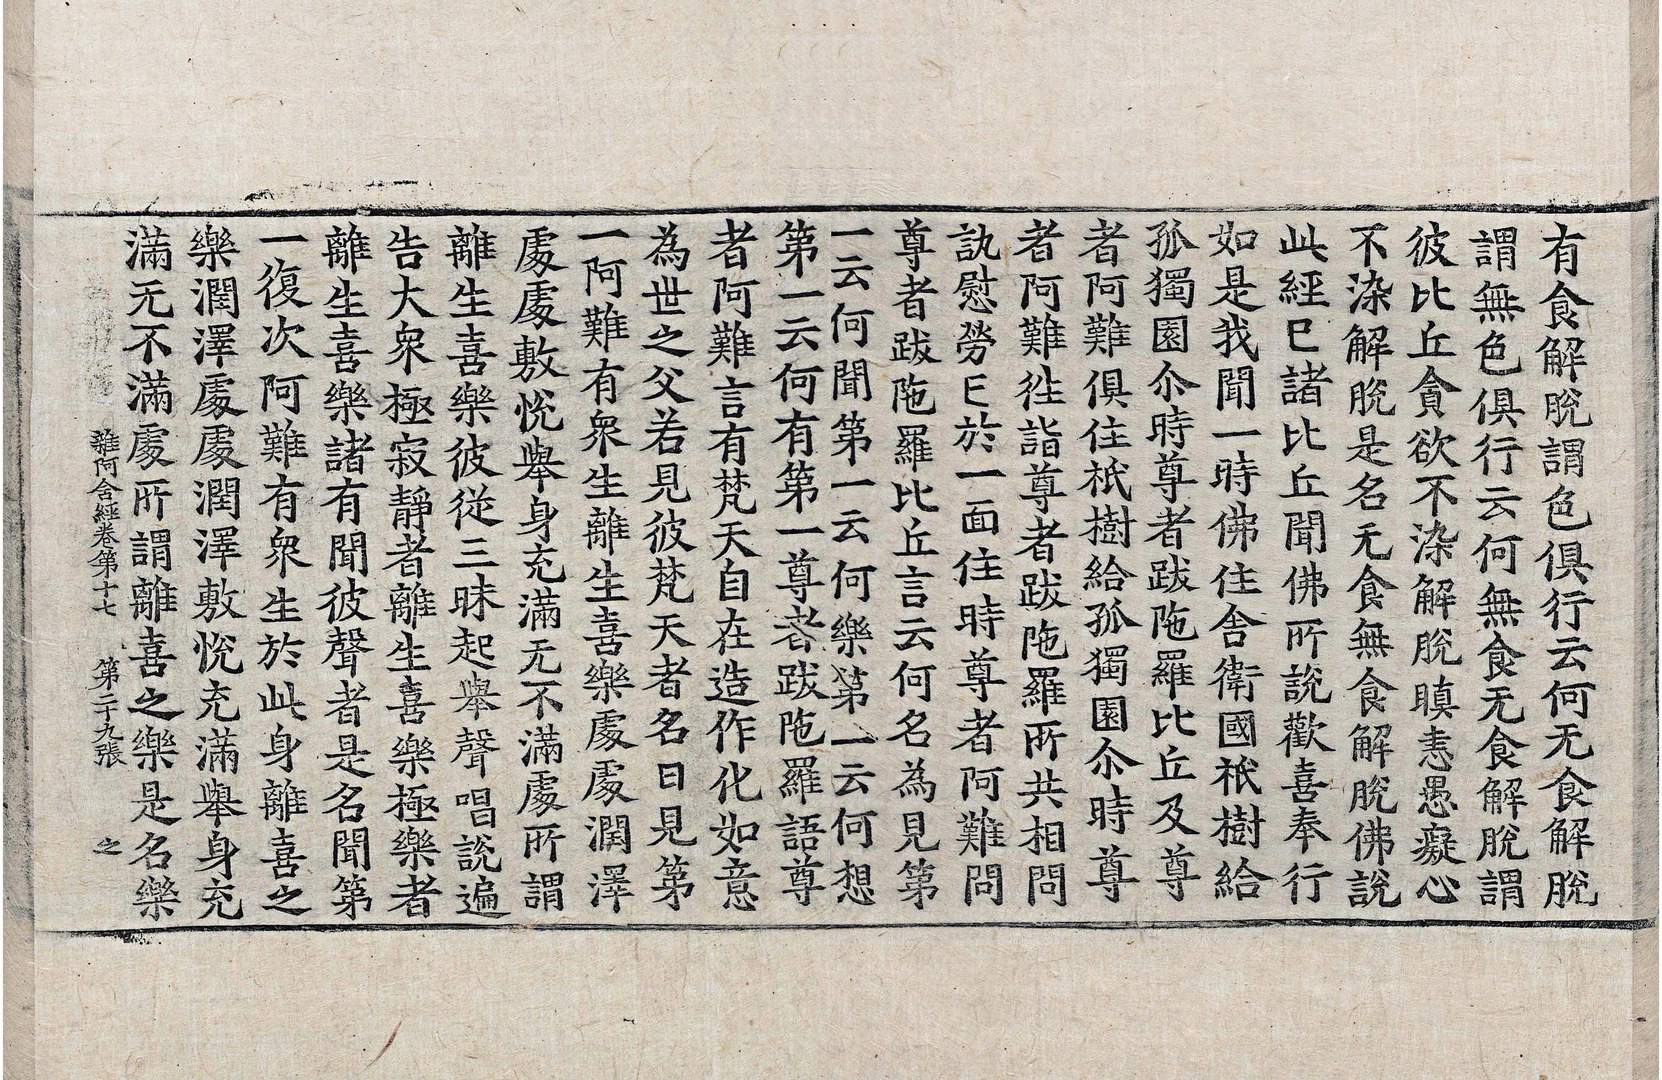 有食解脫謂色俱行云何无食解脫
謂無色俱行云何無食无食解脫謂
彼比丘貪欲不染解脫瞋恚愚癡心
不染解脫是名无食無食解脫佛說
此經已諸比丘聞佛所說歡喜奉行
如是我聞一時佛住舍衛國祇樹給
孤獨園尒時尊者跋陁羅比丘及尊
者阿難俱住祇樹給孤獨園尒時尊
者阿難徃詣尊者跋陁羅所共相問
訊慰勞已於一面住時尊者阿難問
尊者跋陁羅比丘言云何名為見第
一云何聞第一云何樂第一云何想
第一云何有第一尊者跋陁羅語尊
者阿難言有梵天自在造作化如意
為世之父若見彼梵天者名曰見第
一阿難有衆生離生喜樂處處潤澤
處處敷悅舉身充滿无不滿處所謂
離生喜樂彼從三昧起舉聲唱說遍
告大衆極寂靜者離生喜樂極樂者
離生喜樂諸有聞彼聲者是名聞第
一復次阿難有衆生於此身離喜之
樂潤澤處處潤澤敷悅充滿舉身充
滿无不滿處所謂離喜之樂是名樂
雜阿含經卷第十七 第二十九張 之